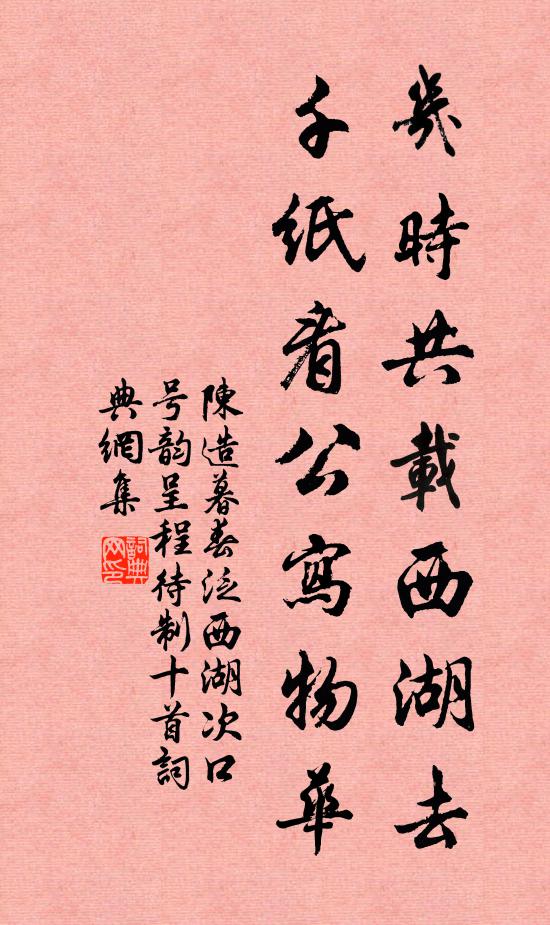 幾時共載西湖去
千紙看公寫物華
陳造暮春泛西湖次口
号韵呈程待制十首詞
典網集
詞典網印